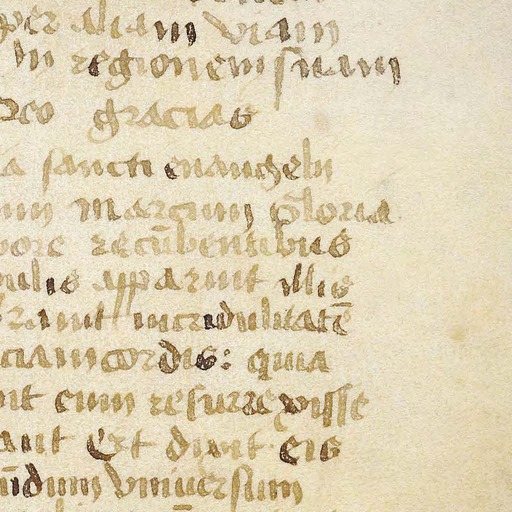 per aliam viam
in regionem suam
Deo gracias
a sancti euangelii
um marcum Gloria
pore recūbentibus
pulis apparuit illis
braūit incridulitatē
ciam cordis: quia
nt eum resurrexisse
ant Et dixit eis
ūdum vniuersum